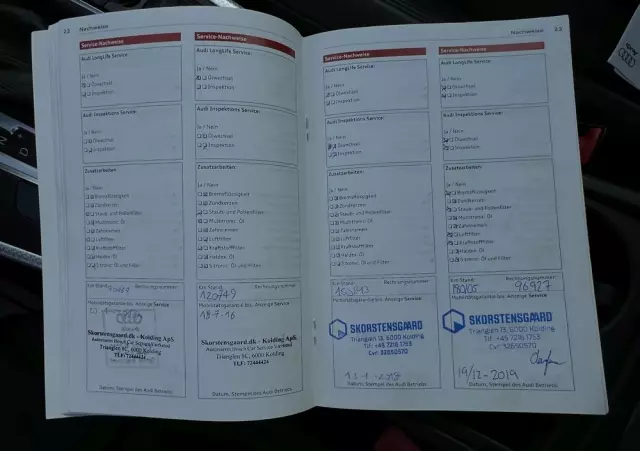 22 Nachweise
Service-Nachweise
Audi LongLife Service:
Ja / Nein
Ölwechsel
Inspektion
Audi Inspektions Service:
Ja / Nein
Ölwechsel
Inspektion
Zusatzarbeiten:
Ja / Nein
Bremsflüssigkeit
Zündkerzen
Staub- und Pollenfilter
Multitronic Öl
Zahnriemen
Luftfilter
Kraftstofffilter
Haldex Öl
S tronic: Öl und Filter
Km-Stand: Rechnungsnummer:
Mobilitätsgarantie bis: Anzeige Service
Skorstensgaard.dk - Kolding ApS
Trianglen 8C, 6000 Kolding
TLF: 72444424
Datum, Stempel des Audi Betriebs
Service-Nachweise
Audi LongLife Service:
Ja / Nein
Ölwechsel
Inspektion
Audi Inspektions Service:
Ja / Nein
Ölwechsel
Inspektion
Zusatzarbeiten:
Ja / Nein
Bremsflüssigkeit
Zündkerzen
Staub- und Pollenfilter
Multitronic Öl
Zahnriemen
Luftfilter
Kraftstofffilter
Haldex Öl
S tronic: Öl und Filter
Km-Stand: Rechnungsnummer:
120749
Mobilitätsgarantie bis: Anzeige Service
18-7-16
Skorstensgaard.dk - Kolding ApS
Trianglen 8C, 6000 Kolding
TLF: 72444424
Datum, Stempel des Audi Betriebs
Nachweise 23
Service-Nachweise
Audi LongLife Service:
Ja / Nein
Ölwechsel
Inspektion
Audi Inspektions Service:
Ja / Nein
Ölwechsel
Inspektion
Zusatzarbeiten:
Ja / Nein
Bremsflüssigkeit
Zündkerzen
Staub- und Pollenfilter
Multitronic Öl
Zahnriemen
Luftfilter
Kraftstofffilter
Haldex Öl
S tronic: Öl und Filter
Km-Stand: Rechnungsnummer:
Mobilitätsgarantie bis: Anzeige Service
SKORSTENSGAARD
Trianglen 13, 6000 Kolding
Tlf: +45 7216 1753
Cvr: 32650570
Datum, Stempel des Audi Betriebs
Service-Nachweise
Audi LongLife Service:
Ja / Nein
Ölwechsel
Inspektion
Audi Inspektions Service:
Ja / Nein
Ölwechsel
Inspektion
Zusatzarbeiten:
Ja / Nein
Bremsflüssigkeit
Zündkerzen
Staub- und Pollenfilter
Multitronic Öl
Zahnriemen
Luftfilter
Kraftstofffilter
Haldex Öl
S tronic: Öl und Filter
Km-Stand: Rechnungsnummer:
96927
Mobilitätsgarantie bis: Anzeige Service
SKORSTENSGAARD
Trianglen 13, 6000 Kolding
Tlf: +45 7216 1753
Cvr: 32650570
19/12-2019
Datum, Stempel des Audi Betriebs